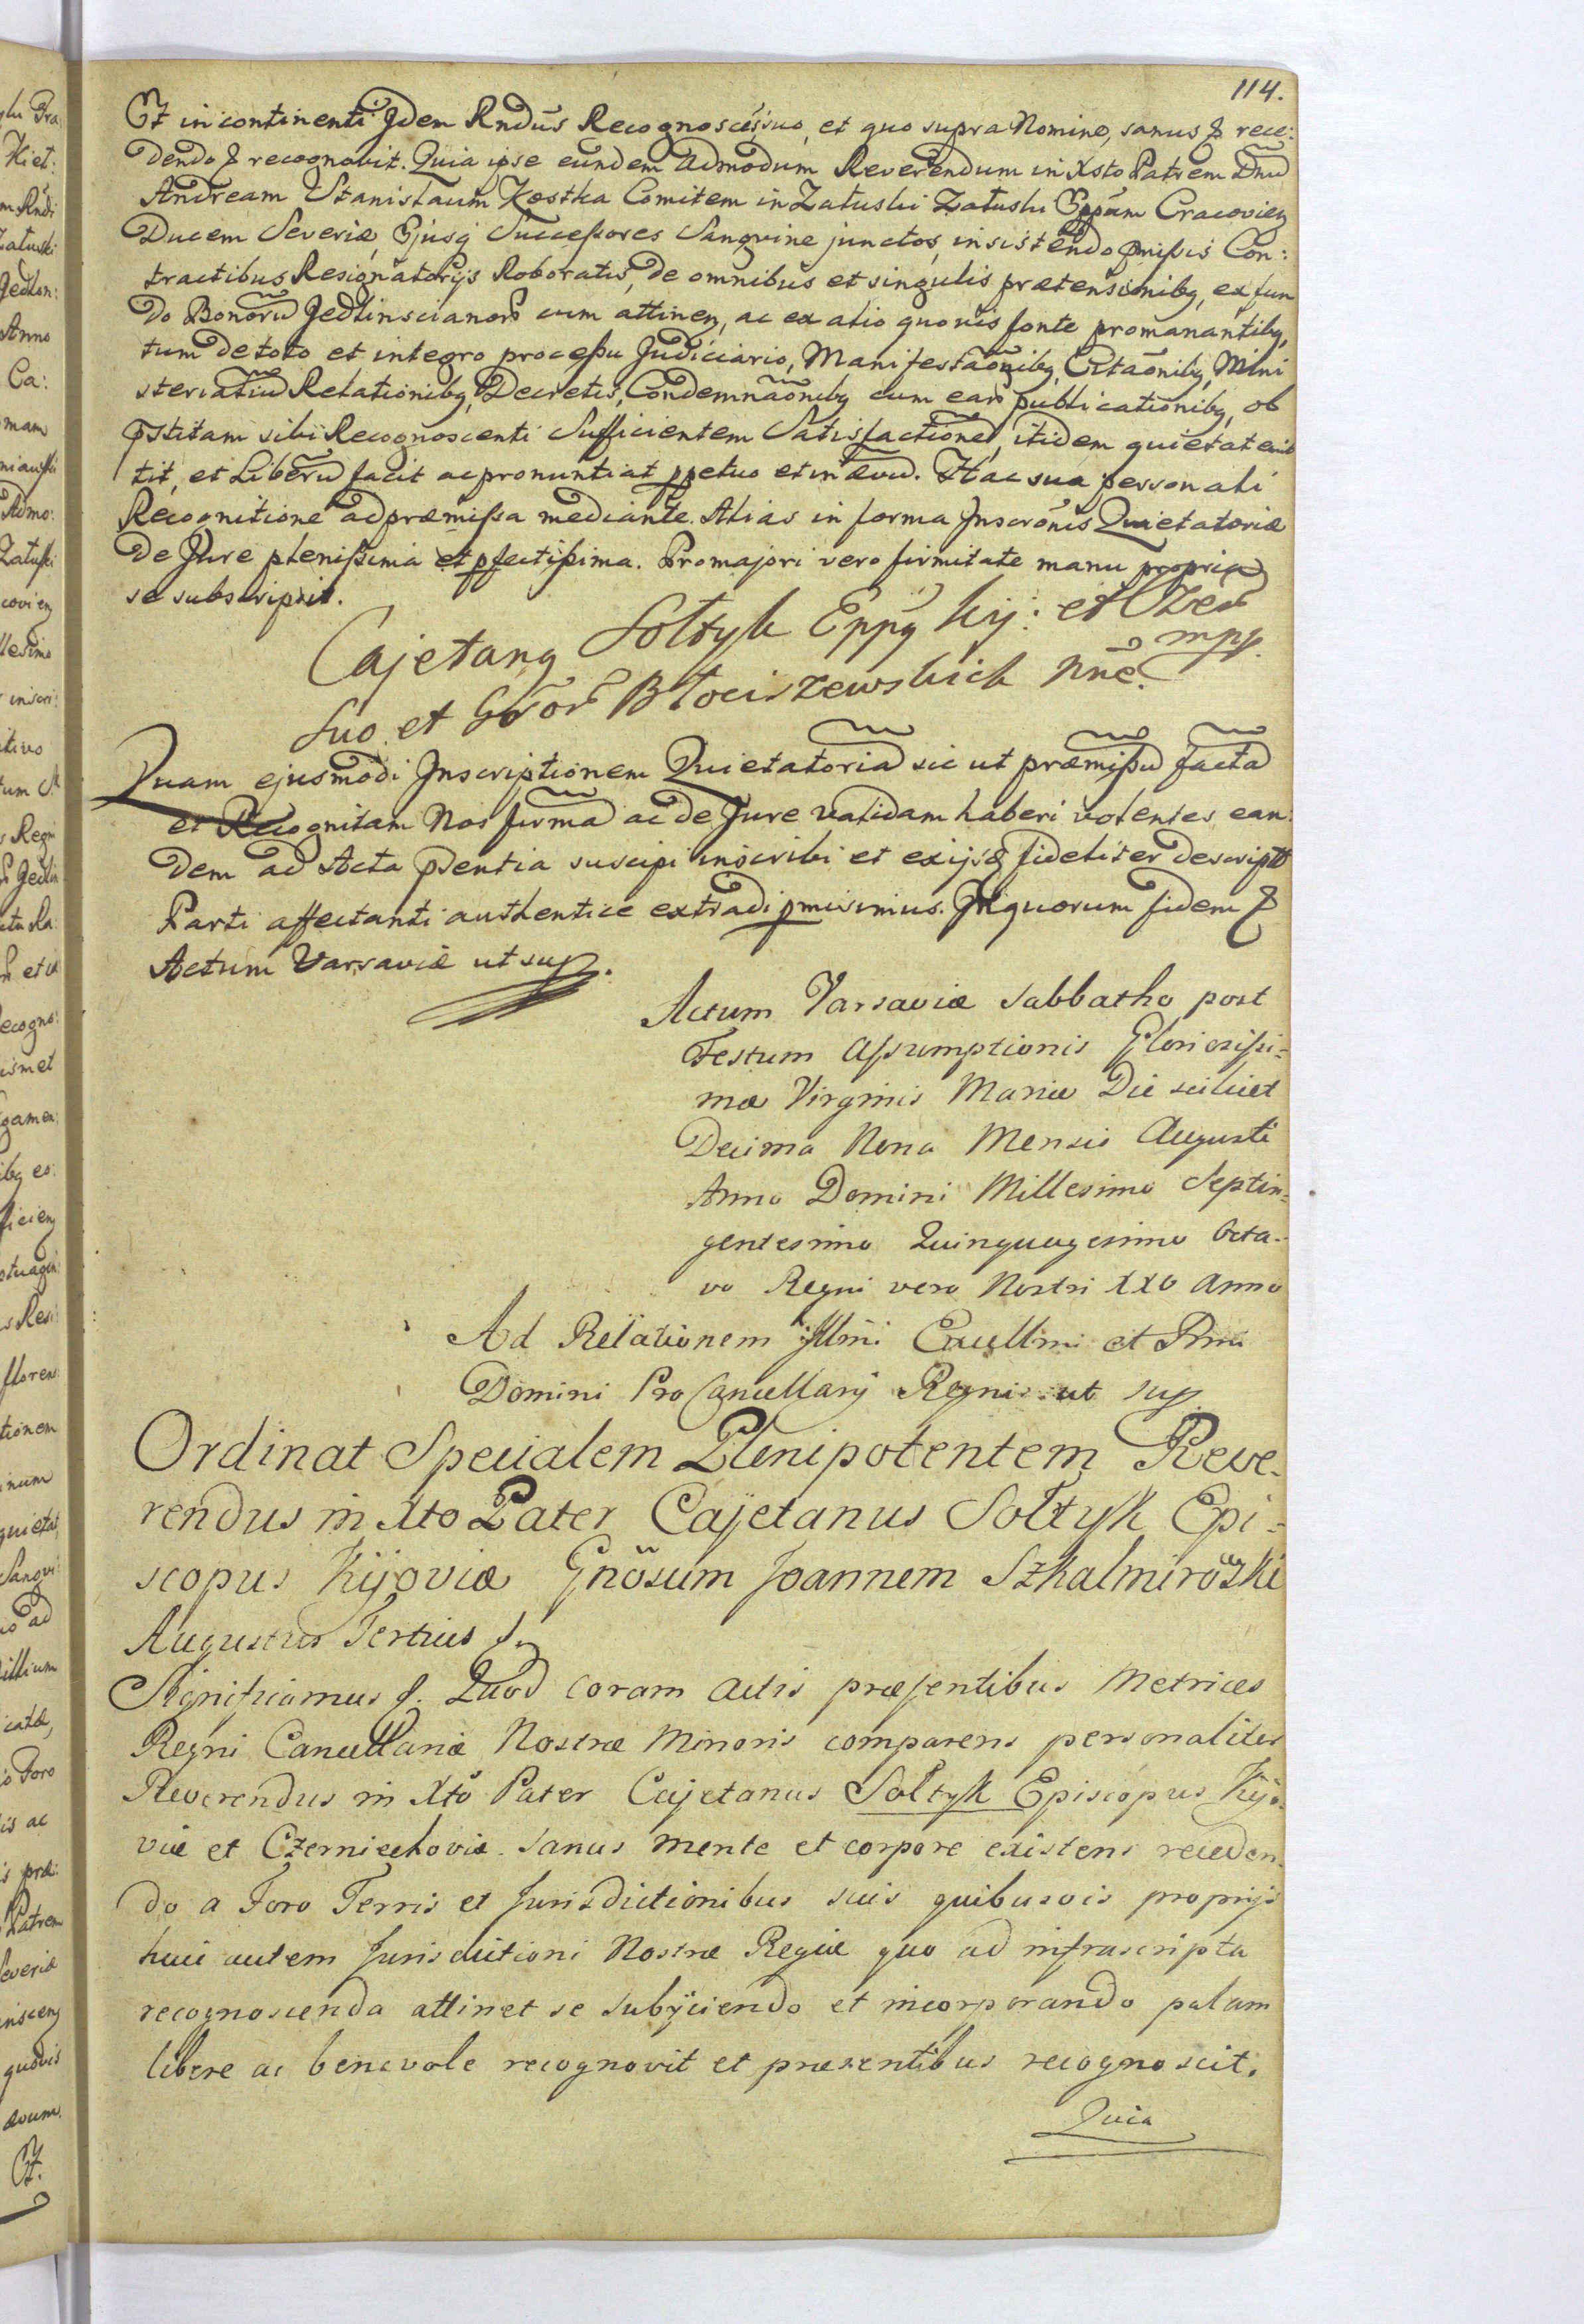 114.
Et in continenti Idem Rndus Recognoscẽs, suo, et quo supra Nomine, sanus & rece:
dendo & recognovit. Quia ipse eundem Admodum Reverendum in Xsto Patrem Dnũ
Andream Stanislaum Kostka Comitem in Załuski Załuski Eppum Cracovien
Ducem Severiæ, Ejusq Successores Sangvine junctos, insistendo pmissis Con:
tractibus Resignatorijs Roboratis, de omnibus et singulis prætensionibq, ex fun
do Bonorũ Jedlinscianor cum attinen, ac ex alio quovis fonte promanantibq,
tum de toto et integro processu Judiciario, Manifestaõnibq, Citaõnibq, Mini
sterialiũ Relationibq, Decretis, Condemnaõnibq cum ear publicationibq, ob
pstitam sibi Recognoscenti Sufficientem Satisfactionẽ, itidem quietat emit
tit, et Liberũ facit ac pronuntiat ppetuo et in ævũ. Hac sua personali
Recognitione ad præmissa mediante. Alias in forma Inscrõnis Quietatoriæ
de Jure plenissima et pfectissima. Pro majori vero firmitate manu propria
se subscripsit.
Cajetanq Sołtyk Eppq Kij: et Czer
mpp.
Suo et Gñor Błociszewskich nñe.
Quam ejusmodi Inscriptionem Quietatoriã sic ut præmissũ factã
et Recognitam Nos firmã ac de Jure validam haberi volentes ean
dem ad Acta psentia suscipi inscribi et exijsq fideliter descriptã
Parti affectanti authentice extradi pmisimus. In quorum fidem &
Actum Varsaviæ ut sup.
Actum Varsaviæ Sabbatho post
Festum Assumptionis Gloriosissi=
mæ Virginis Mariæ Die scilicet
Decima Nona Mensis Augusti
Anno Domini Millesimo Septin=
gentesimo Quinquagesimo Octa-
vo Regni vero Nostri XXV Anno
Ad Relationem Illmi Excellmi et Rmi
Domini Pro Cancellarij Regni ut sup
Ordinat Specialem Plenipotentem Reve-
rendus in Xto Pater Cajetanus Sołtyk Epi=
scopus Kijoviæ Gñosum Joannem Szkalmirozki
Augustus Tertius &
Significamus &. Quod coram Actis præsentibus Metrices
Regni Cancellariæ Nostræ Minoris comparens personaliter
Reverendus in Xto Pater Cajetanus Sołtyk Episcopus Kijo-
viæ et Czerniechoviæ. Sanus mente et corpore existens receden-
do a Foro Terris et Jurisdictionibus suis quibusvis proprijs
huic autem Jurisdictioni Nostræ Regiæ quo ad infrascripta
recognoscenda attinet se subijciendo et incorporando palam
libere ac benevole recognovit et præsentibus recognoscit.
Quia